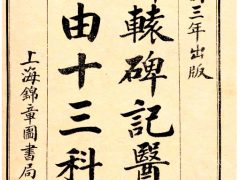 三年出版
轅碑記醫
由十三科
上海錦章圖書局